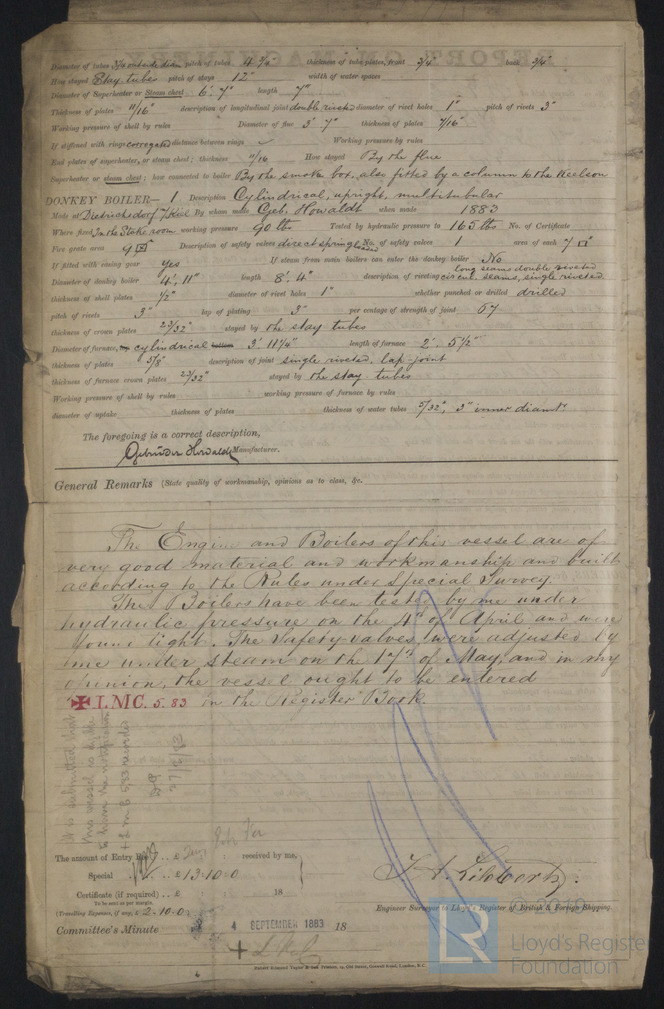 Diameter of tubes 3¼ outside diam pitch of tubes 4 ¾" thickness of tube plates, front ¾" back ¾"
How stayed Stay tubes pitch of stays 12" width of water spaces
Diameter of Superheater or Steam chest 6' 7" length 7"
Thickness of plates 11/16" description of longitudinal joint double rivetd diameter of rivet holes 1" pitch of rivets 3"
Working pressure of shell by rules Diameter of flue 3' 7" thickness of plates 7/16"
If stiffened with rings corregated distance between rings Working pressure by rules
End plates of superheater, or steam chest; thickness 11/16 How stayed By the flue
Superheater or steam chest; how connected to boiler By the smoke box, also fitted by a column to the Keelson
DONKEY BOILER— 1 Description Cylindrical, upright, multitubular
Made at Dietrichsdorf / Kiel By whom made Geb. Howaldt when made 1883
Where fixed In the Stoke room working pressure 90 lbs Tested by hydraulic pressure to 163 lbs No. of Certificate
Fire grate area 9 □' Description of safety valves direct spring loaded No. of safety valves 1 area of each 7 □"
If fitted with easing gear yes If steam from main boilers can enter the donkey boiler No
Diameter of donkey boiler 4', 11" length 8'. 4" description of riveting long seams double riveted circul. seams, single riveted
thickness of shell plates 1/2" diameter of rivet holes 1" whether punched or drilled drilled
pitch of rivets 3" lap of plating 3" per centage of strength of joint 67
thickness of crown plates 23/32" stayed by the stay tubes
Diameter of furnace, top cylindrical bottom 3' 11¼" length of furnace 2'. 5½"
thickness of plates 5/8" description of joint single riveted lap-joint
thickness of furnace crown plates 23/32" stayed by the stay tubes
Working pressure of shell by rules working pressure of furnace by rules
diameter of uptake thickness of plates thickness of water tubes 5/32", 3" inner diamtr
The foregoing is a correct description,
Gebrüder Howaldt Manufacturer.
General Remarks (State quality of workmanship, opinions as to class, &c.
The Engine and Boilers of this vessel are of
very good material and workmanship and built
according to the Rules under Special Survey.
The Boilers have been tested by me under
hydraulic pressure on the 4th of April and were
found tight. The Safety-valves were adjusted by
me under steam on the 17th of May, and in my
opinion, the vessel ought to be entered
✠ LMC. 5. 83 in the Register Book.
It is submitted that
this vessel is eligible
to have the notification
+ LMC 5/83 recorded
27/8/83
The amount of Entry Fee .. £ : : received by me,
Special .. £ 13-10-0
Certificate (if required) .. £ : : 18
To be sent as per margin.
(Travelling Expenses, if any, £ 2-10-0)
Engineer Surveyor to Lloyd's Register of British & Foreign Shipping.
Committee's Minute 4 SEPTEMBER 1883 18
+ LMC
LR
Lloyd's Register
Foundation